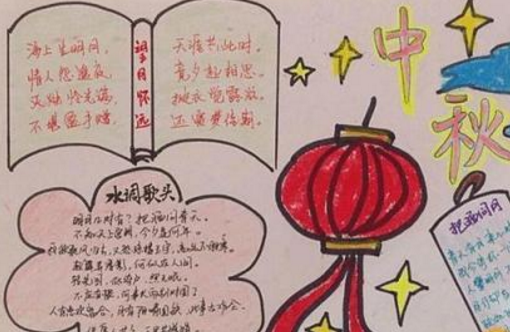 海上生明月,
情人怨遥夜,
灭烛怜光满,
不堪盈手赠,
望月怀远
天涯共此时。
竟夕起相思。
披衣觉露滋。
还寝梦佳期。
中秋
水调歌头
明月几时有？把酒问青天。
不知天上宫阙，今夕是何年。
我欲乘风归去，又恐琼楼玉宇，高处不胜寒。
起舞弄清影，何似在人间。
转朱阁，低绮户，照无眠。
不应有恨，何事长向别时圆？
人有悲欢离合，月有阴晴圆缺，此事古难全。
把酒问月